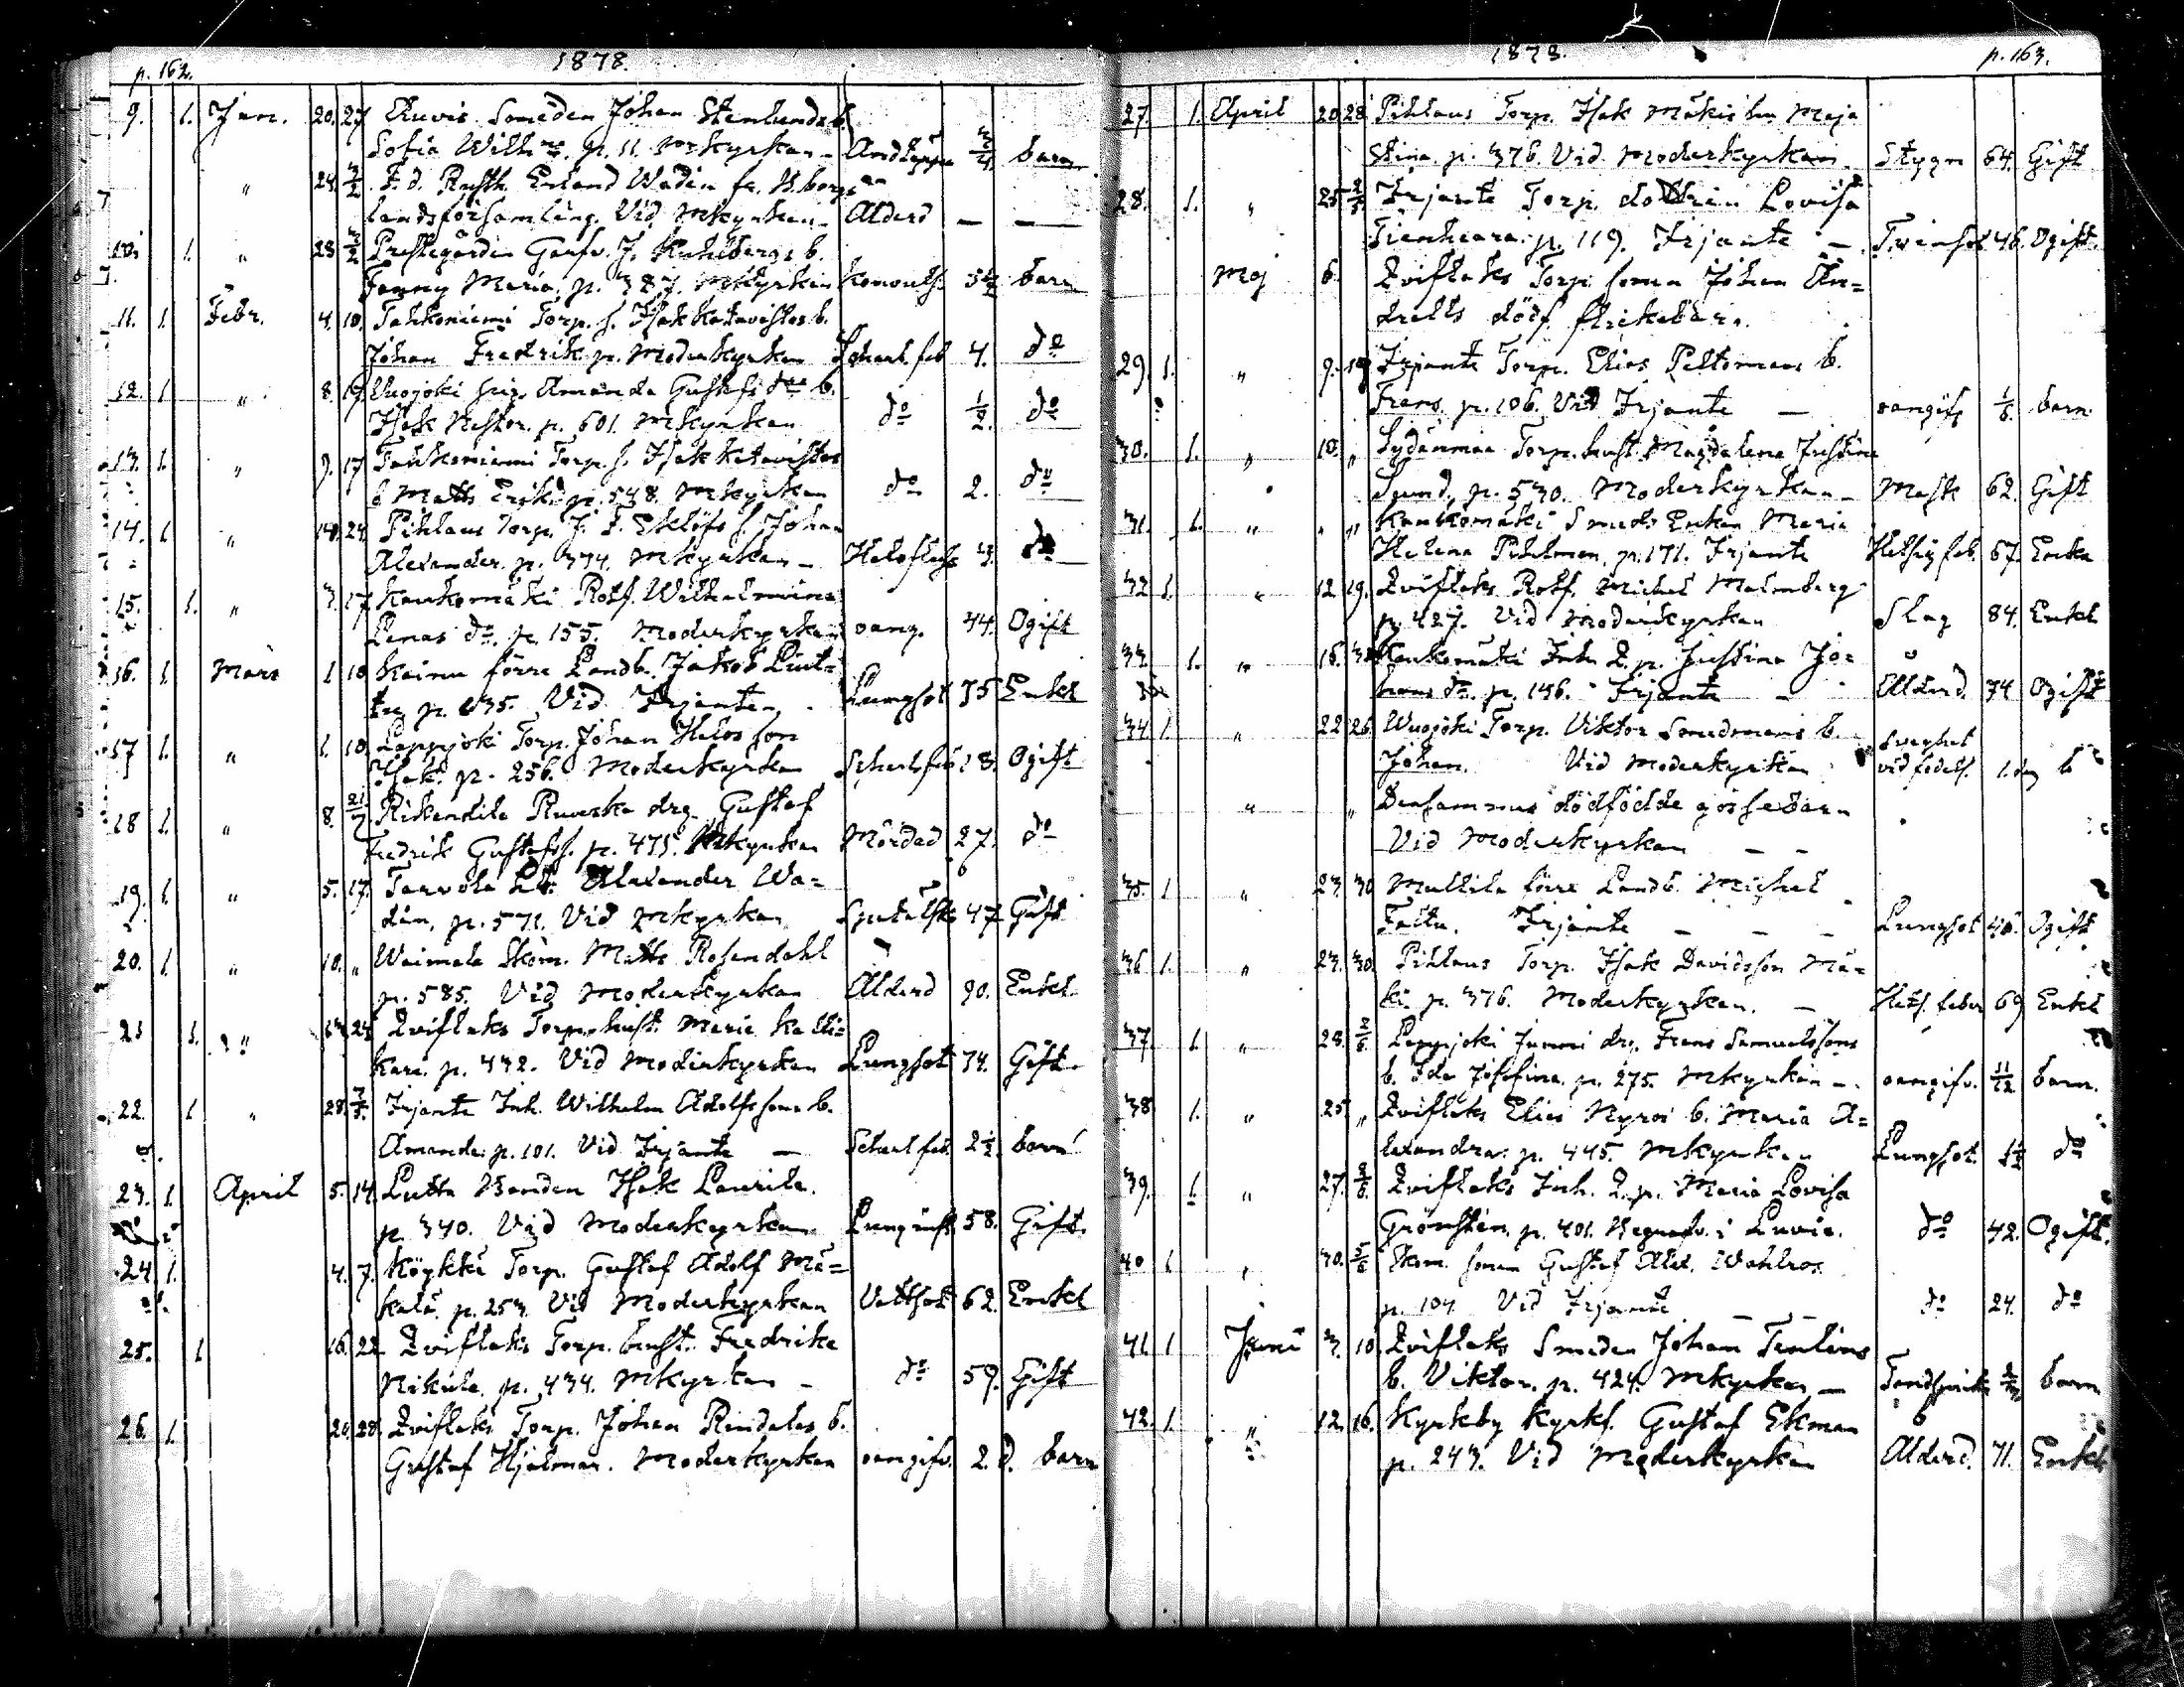 p. 162.
1878.
9. 1. Jan. 20. 27 Ruvis Smeden Johan Stenlunds b.
Sofia Wilhna. p. 11. Mkyrkan - Andtäppa barn
" 24. 3/2 F. d. Rusth. Erland Wadén fr. B.borgs
landsförsamling. Vid Mkyrkan - Ålderd — —
10. 1. " 28 3/2 Prestegården J. b.
Fanny Maria. p. 387. Mkyrkan barn
11. 1. Febr. 4. 10. Tahkoniemi Torp. s. Isak Katavistos b.
Johan Fredrik p. Moderkyrkan Scharl. feb 4. do
12. 1. " 8. 17 Vuojoki Amanda Gustafs drs b.
Isak Nestor. p. 601. Mkyrkan do 1/2. do
13. 1. " 9. 17 Tahkoniemi Torp. s. Isak Katavistos
b Matts Erik p. 548. Mkyrkan do 2. do
14. 1. " 24. Pihlaus Torp. J. F. Eklöfs s. Johan
Alexander. p. 374. Mkyrkan - 3. do
15. 1. " 3. 17 Kaukomäki Rotf. Wilhelmina
Lenas dr. p. 155. Moderkyrkan oang. 44. Ogift
16. 1. Mars 1. 10 Kainu förre Landb. Jakob
p. 135. Vid Irjante. Lungsot 75 Enkl
17 1. " 1. 10. Lappijoki Torp. Johan Helos son
Isak. p. 256. Moderkyrkan Scharl. feb 18. Ogift
18 1. " 8. Rikantila Ruveska drg. Gustaf
Fredrik Gustafss. p. 475. Mkyrkan Mördad 27. do
19. 1. " 5. 17. Tarvola Alexander Wa=
dén. p. 571. Vid Mkyrkan 47 Gift
20. 1. " 10. " Waimala Skom. Matts Rosendahl
p. 585. Vid Moderkyrkan Ålderd 90. Enkl
21 1. " 24 Zviflaks Torp. hust. Maria Kalli=
kara. p. 432. Vid Moderkyrkan Lungsot 74. Gift
22. 1 " 28. Irjante Inh. Wilhelm Adolfssons b.
Amanda. p. 101. Vid Irjante — Scharl. feb. 2 1/2. barn
23. 1. April 5. 14. Lutta Bonden Isak Laurila.
p. 340. Vid Moderkyrkan Lunginfl. 58. Gift.
24 1. 4. 7. Köykkä Torp. Gustaf Adolf Mä=
kelä. p. 253. Vid Moderkyrkan Vattsot 62. Enkl
25. 1 16. 22 Zviflaks Torp. hust. Fredrika
Nikula. p. 434. Mkyrkan - do 59. Gift
26. 1. 20. 28. Zviflaks Torp. Johan Rindalas b.
Gustaf Hjalmar. Moderkyrkan oangifv. 2. d. barn
1878.
p. 163.
27. 1. April 20 28 Pihlaus Torp. Isak Mäkis hu Maja
Stina. p. 376. Vid Moderkyrkan. Stygn 64. Gift
28. 1. " 25 Irjante Torp. dottren Lovisa
Tienhaara. p. 119. Irjante — 46. Ogift
Maj 6. Zviflaks Torp. sonen Johan An=
drells dödf. flickebarn.
29. 1. " 9. 19 Irjante Torp. Elias Peltomans b.
Frans. p. 106. Vid Irjante — oangifv barn
30. 1. " 10. " Sydänmaa Torp. hust. Magdalena Justina
p. 570. Moderkyrkan - 62. Gift
31. 1. " " " Kaukomäki Smeds Enkan Maria
Helena Pihlman. p. 171. Irjante Hetsig feb. 67. Enka
32 1. " 12 19. Zviflaks Rotf. Michel Malmberg
p. 427. Vid Moderkyrkan Slag 84. Enkl
33. 1. " 16. 30 Kaukomäki Inh. Q. p. Justina Jo=
hans dr. p. 146. Irjante - Ålderd. 74 Ogift
34. 1 " 22 26. Wuojoki Torp. Viktor Smedmans b. Svaghet
Johan. Vid Moderkyrkan vid födels. 1. dag b
" " Densammes dödfödde gossebarn
Vid Moderkyrkan — —
35. 1 " 23. 30 Mullila förre Landb. Michel
Irjante — — — Lungsot 40. Ogift
36 1. " 23. 30. Pihlaus Torp. Isak Davidsson Mä=
ki. p. 376. Moderkyrkan. — Hets. feber 69 Enkl
37. 1. " 28. 2/6. Lappijoki Junni drg. Frans Samuelssons
b. Ida Josefina. p. 275. Mkyrkan -. oangifv. 11/12 barn.
38. 1. " 25 " Zviflaks Elias Nyroos b. Maria A=
lexandra. p. 445. Mkyrkan Lungsot. do
39. 1. " 27. Zviflaks Inh. Q. p. Maria Lovisa
Grönstén. p. 401. Begrafv. i Luvia. do 42. Ogift.
40 1 " 30. Skom. sonen Gustaf Alex. Wahlros
p. 104. Vid Irjante — — do 24. do
41 1 Juni 3. 10 Zviflaks Smeden Johan Tenlins
b. Viktor. p. 424. Mkyrkan — Tandsprickn barn
42. 1. " 12. 16. Kyrkby Kyrks. Gustaf Ekman
p. 243. Vid Moderkyrkan Ålderd. 71. Enkl